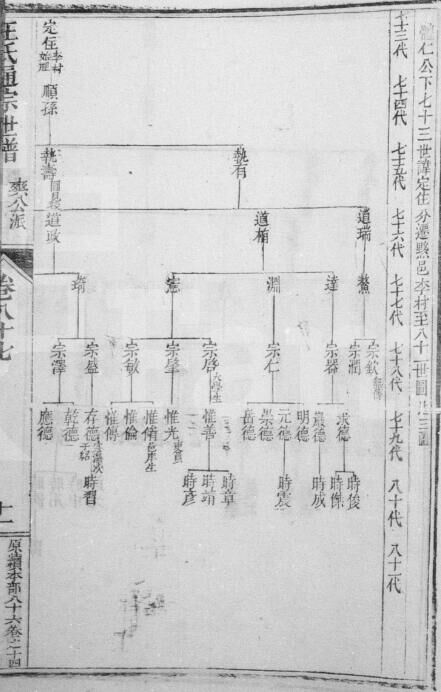 體仁公下七十三世諱定住分遷黟邑李村至八十一世圖
七十三代 七十四代 七十五代 七十六代 七十七代 七十八代 七十九代 八十代 八十一代
定住 李村始祖 順孫
執有
執壽
道瑞
道楠
道政
鰲
達
淵
憲
琦
宗欽
宗潤
宗器
宗仁
宗啓
宗肇
宗敏
宗盛
宗澤
求德
巖德
明德
元德
崇德
岳德
惟善
惟光
惟脩
惟倫
惟傳
存德
乾德
應德
時俊
時傑
時成
時震
時章
時靖
時彥
時習
汪氏通宗世譜
爽公派
卷八十七
十一
原續本部八十六卷之十四